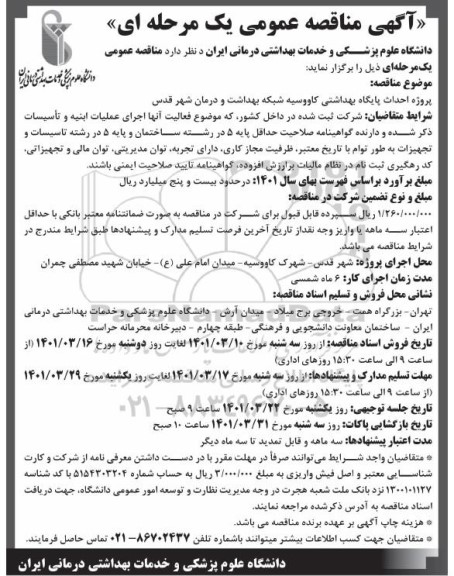 «آگهی مناقصه عمومی یک مرحله ای»
دانشگاه علوم پزشکی و خدمات بهداشتی درمانی ایران د نظر دارد مناقصه عمومی
یک‌مرحله‌ای ذیل را برگزار نماید:
موضوع مناقصه:
پروژه احداث پایگاه بهداشتی کاووسیه شبکه بهداشت و درمان شهر قدس
شرایط متقاضیان: شرکت ثبت شده در داخل کشور، که موضوع فعالیت آنها اجرای عملیات ابنیه و تأسیسات
ذکر شده و دارنده گواهینامه صلاحیت حداقل پایه ۵ در رشته ساختمان و پایه ۵ در رشته تاسیسات و
تجهیزات به طور توام با تاریخ معتبر، ظرفیت مجاز کاری، دارای تجربه، توان مدیریتی، توان مالی و تجهیزاتی،
کد رهگیری ثبت نام در نظام مالیات برارزش افزوده، گواهینامه تایید صلاحیت ایمنی باشند.
مبلغ برآورد براساس فهرست بهای سال ۱۴۰۱: در حدود بیست و پنج میلیارد ریال
مبلغ و نوع تضمین شرکت در مناقصه:
۱/۲۶۰/۰۰۰/۰۰۰ ریال سپرده قابل قبول برای شرکت در مناقصه به صورت ضمانتنامه معتبر بانکی با حداقل
اعتبار سه ماهه یا واریز وجه نقد از تاریخ آخرین فرصت تسلیم مدارک و پیشنهادها طبق شرایط مندرج در
شرایط مناقصه می باشد.
محل اجرای پروژه: شهر قدس- شهرک کاووسیه- میدان امام علی (ع)- خیابان شهید مصطفی چمران
مدت زمان اجرای کار: ۶ ماه شمسی
نشانی محل فروش و تسلیم اسناد مناقصه:
تهران- بزرگراه همت - خروجی برج میلاد - میدان آرش - دانشگاه علوم پزشکی و خدمات بهداشتی درمانی
ایران - ساختمان معاونت دانشجویی و فرهنگی- طبقه چهارم - دبیرخانه محرمانه حراست
تاریخ فروش اسناد مناقصه: از روز سه شنبه مورخ ۱۴۰۱/۰۳/۱۰ لغایت روز دوشنبه مورخ ۱۴۰۱/۰۳/۱۶ (از
ساعت ۹ الی ساعت ۱۵:۳۰ روزهای اداری)
مهلت تسلیم مدارک و پیشنهادها: از روز سه شنبه مورخ ۱۴۰۱/۰۳/۱۷ لغایت روز یکشنبه مورخ ۱۴۰۱/۰۳/۲۹
(از ساعت ۹ الی ساعت ۱۵:۳۰ روزهای اداری)
تاریخ جلسه توجیهی: روز یکشنبه مورخ ۱۴۰۱/۰۳/۲۲ ساعت ۹ صبح
تاریخ بازگشایی پاکات: روز سه شنبه مورخ ۱۴۰۱/۰۳/۳۱ ساعت ۱۰ صبح
مدت اعتبار پیشنهادها: سه ماهه و قابل تمدید تا سه ماه دیگر
* متقاضیان واجد شرایط می‌توانند صرفاً در مهلت مقرر با در دست داشتن معرفی نامه از شرکت و کارت
شناسایی معتبر و اصل فیش واریزی به مبلغ ۳/۰۰۰/۰۰۰ ریال به حساب شماره ۵۱۵۴۳۰۳۲۰۴ با کد شناسه
۱۳۰۰۱۰۱۱۲۷ نزد بانک ملت شعبه هجرت در وجه مدیریت نظارت و توسعه امور عمومی دانشگاه، جهت دریافت
اسناد مناقصه به آدرس ذکر شده مراجعه نمایند.
* هزینه چاپ آگهی بر عهده برنده مناقصه می باشد.
* متقاضیان جهت کسب اطلاعات بیشتر میتوانند باشماره تلفن ۸۶۷۰۲۴۳۷-۰۲۱ تماس حاصل فرمایند.
دانشگاه علوم پزشکی و خدمات بهداشتی درمانی ایران